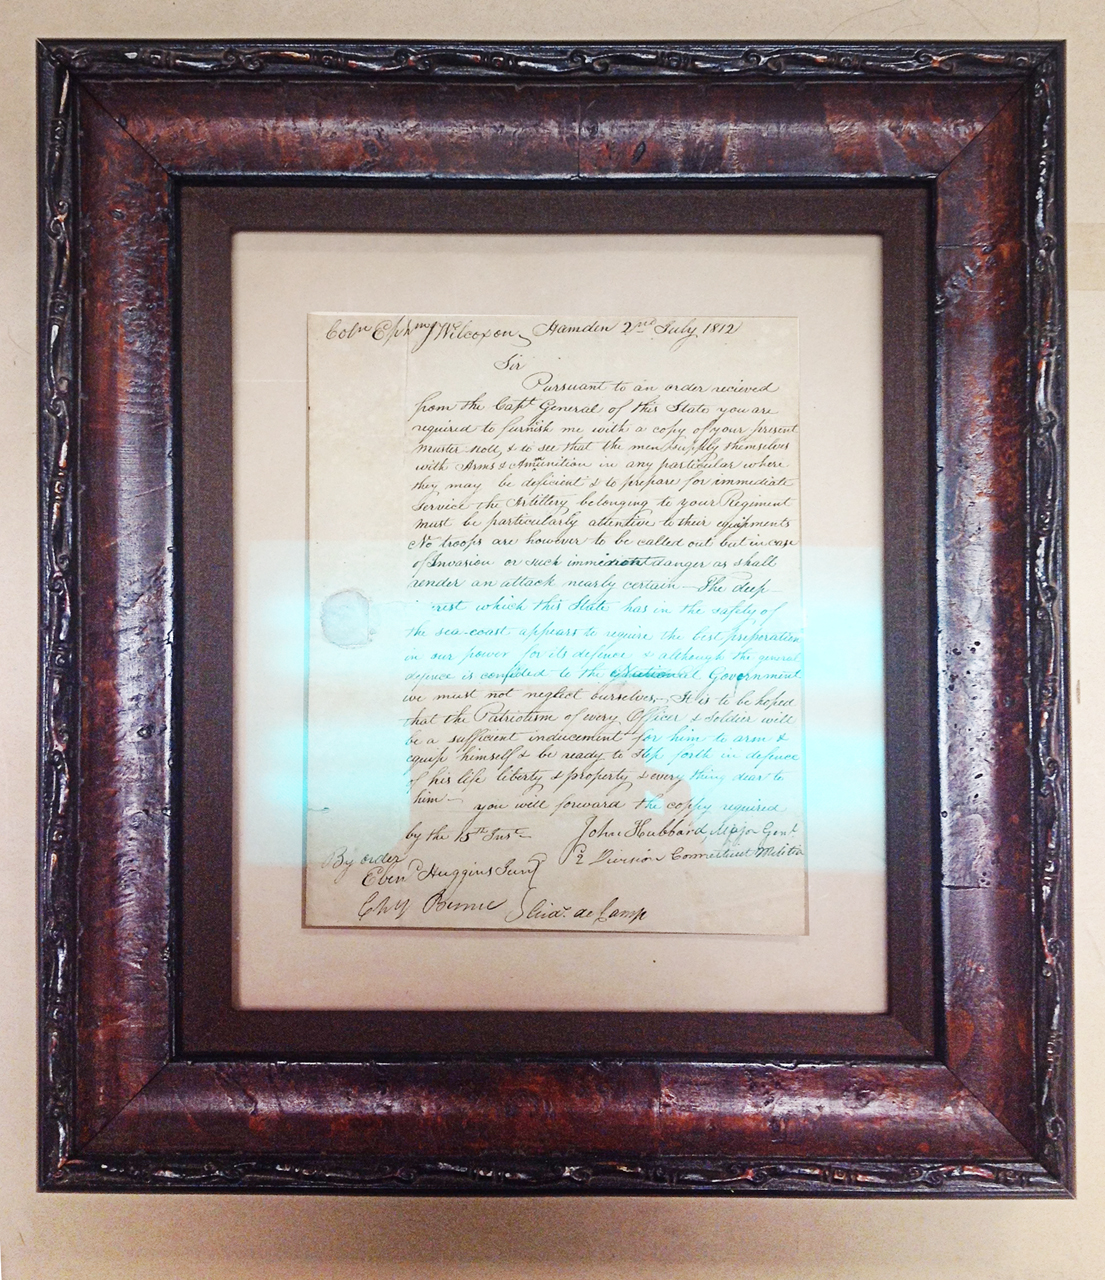 Coln Ephm J Wilcoxon, Hamden 2nd July 1812
Sir
Pursuant to an order recieved
from the Capt General of this State you are
required to furnish me with a copy of your present
muster roll, & to see that the men supply themselves
with Arms & Amunition in any particular where
they may be deficient & to prepare for immediate
service the Artillery belonging to your Regiment
must be particularly attentive to their equipments
No troops are however to be called out but in case
of Invasion or such danger as shall
render an attack nearly certain — The deep
rest which this State has in the safety of
the sea-coast appears to require the best preperation
in our power for its defence & although the general
defence is confided to the Government
we must not neglect ourselves, It is to be hoped
that the Patriotism of every Officer & Soldier will
be a sufficient inducement for him to arm &
equip himself & be ready to step forth in defence
of his life liberty & property & every thing dear to
him — you will forward the copy required
by the 15th Inst — John Hubbard, Major Genl
2 Division Connecticut Militia
By order
Huggins Junr
de Camp